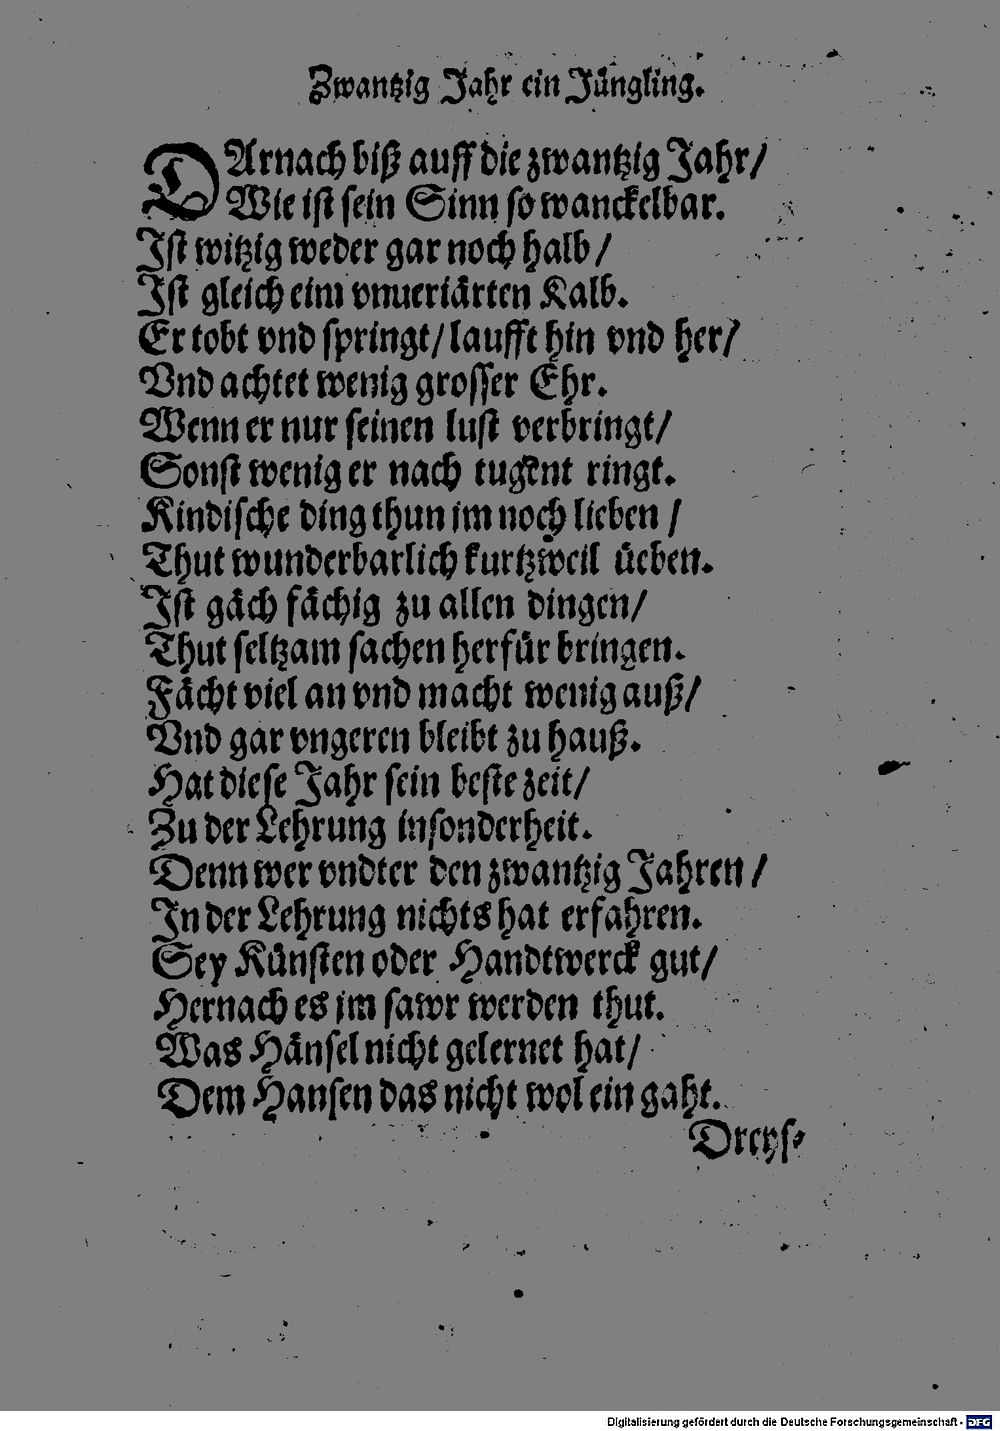 Zwantzig Jahr ein Jüngling.
DArnach biß auff die zwantzig Jahr/
Wie ist sein Sinn so wanckelbar.
Ist witzig weder gar noch halb/
Ist gleich eim vnueriärten Kalb.
Er tobt vnd springt/ laufft hin vnd her/
Vnd achtet wenig grosser Ehr.
Wenn er nur seinen lust verbringt/
Sonst wenig er nach tugent ringt.
Kindische ding thun jm noch lieben /
Thut wunderbarlich kurtzweil üeben.
Ist gäch fächig zu allen dingen/
Thut seltzam sachen herfür bringen.
Fächt viel an vnd macht wenig auß/
Vnd gar vngeren bleibt zu hauß.
Hat diese Jahr sein beste zeit/
Zu der Lehrung insonderheit.
Denn wer vndter den zwantzig Jahren /
In der Lehrung nichts hat erfahren.
Sey Künsten oder Handtwerck gut/
Hernach es jm sawr werden thut.
Was Hänsel nicht gelernet hat/
Dem Hansen das nicht wol ein gaht.
Dreys-
Digitalisierung gefördert durch die Deutsche Forschungsgemeinschaft - DFG